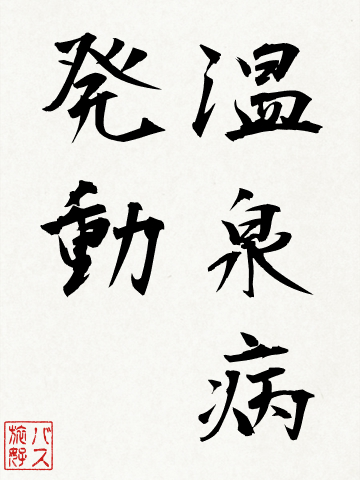 温泉病
発動
バス
旅好